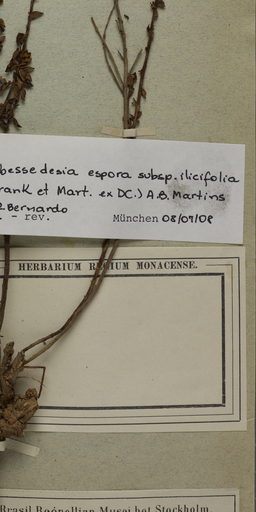 bessedesia espora subsp. ilicifolia
rank et Mart. ex DC.) A.B. Martins
Bernardo
. - rev. München 08/07/08
HERBARIUM REGIUM MONACENSE.
Brasil Regnellian Musei bot Stockholm.